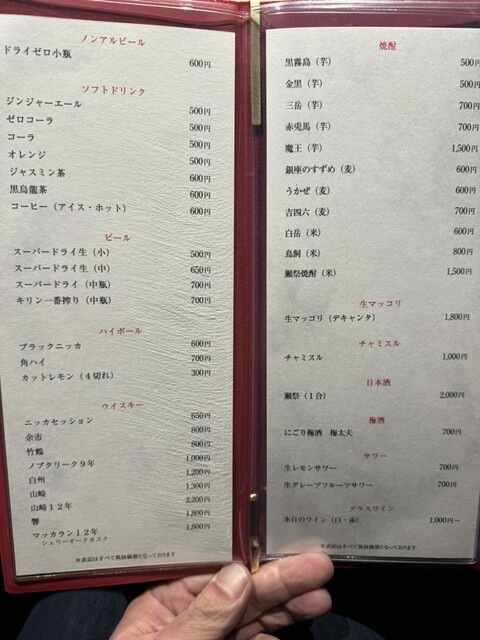 ノンアルビール
ドライゼロ小瓶 600円
ソフトドリンク
ジンジャーエール 500円
ゼロコーラ 500円
コーラ 500円
オレンジ 500円
ジャスミン茶 600円
黒烏龍茶 600円
コーヒー（アイス・ホット） 600円
ビール
スーパードライ生（小） 500円
スーパードライ生（中） 650円
スーパードライ（中瓶） 700円
キリン一番搾り（中瓶） 700円
ハイボール
ブラックニッカ 600円
角ハイ 700円
カットレモン（４切れ） 300円
ウイスキー
ニッカセッション 650円
余市 800円
竹鶴 800円
ノブクリーク９年 1,000円
白州 1,200円
山崎 1,300円
山崎１２年 2,200円
響 1,800円
マッカラン１２年 1,800円
シェリーオークカスク
※表記はすべて税抜価格となっております
焼酎
黒霧島（芋） 500円
金黒（芋） 500円
三岳（芋） 700円
赤兎馬（芋） 700円
魔王（芋） 1,500円
銀座のすずめ（麦） 600円
うかぜ（麦） 600円
吉四六（麦） 700円
白岳（米） 600円
鳥飼（米） 800円
獺祭焼酎（米） 1,500円
生マッコリ
生マッコリ（デキャンタ） 1,800円
チャミスル
チャミスル 1,000円
日本酒
獺祭（１合） 2,000円
梅酒
にごり梅酒　梅太夫 700円
サワー
生レモンサワー 700円
生グレープフルーツサワー 700円
グラスワイン
本日のワイン（白・赤） 1,000円～
※表記はすべて税抜価格となっております